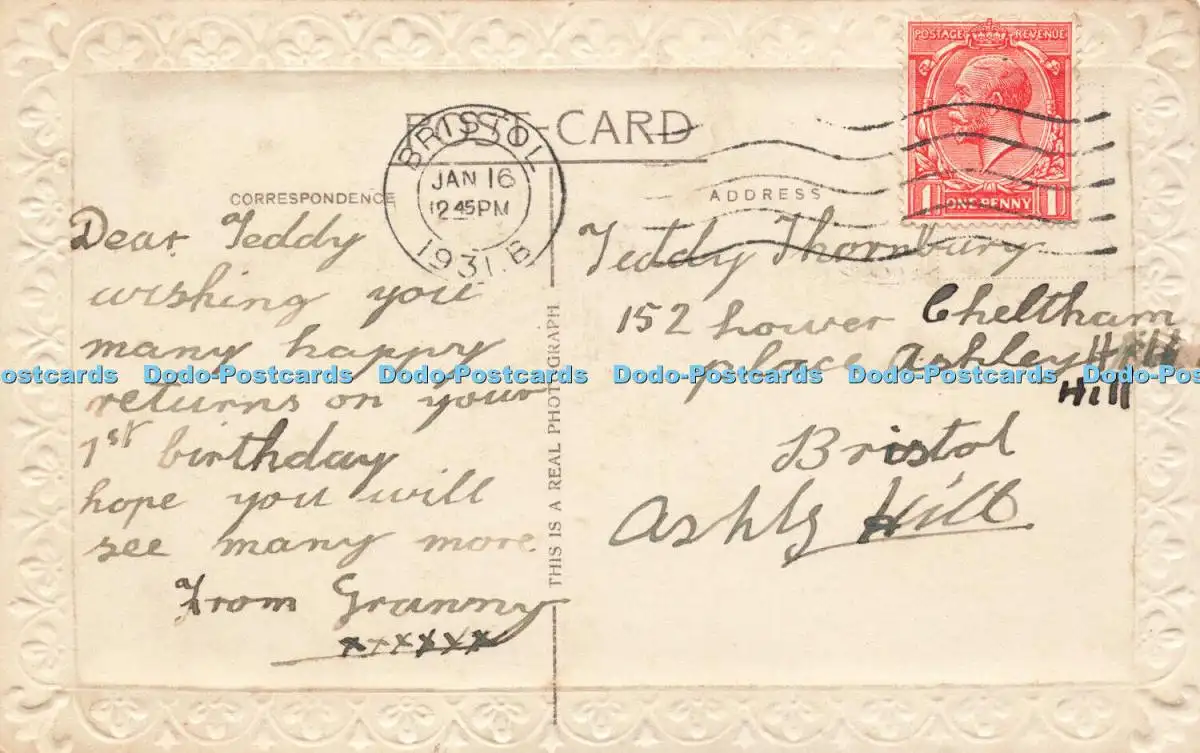 POSTAGE REVENUE
1 ONE PENNY 1
POST-CARD
BRISTOL
JAN 16
12 45 PM
1931. B
CORRESPONDENCE
Dear Teddy
wishing you
many happy
returns on your
1st birthday
hope you will
see many more
From Granny
xxxxxx
THIS IS A REAL PHOTOGRAPH
ADDRESS
Teddy Thornbury
152 Lower Cheltham
place Ashley Hill
Hill
Bristol
Ashly Hill
Dodo-Postcards Dodo-Postcards Dodo-Postcards Dodo-Postcards Dodo-Postcards